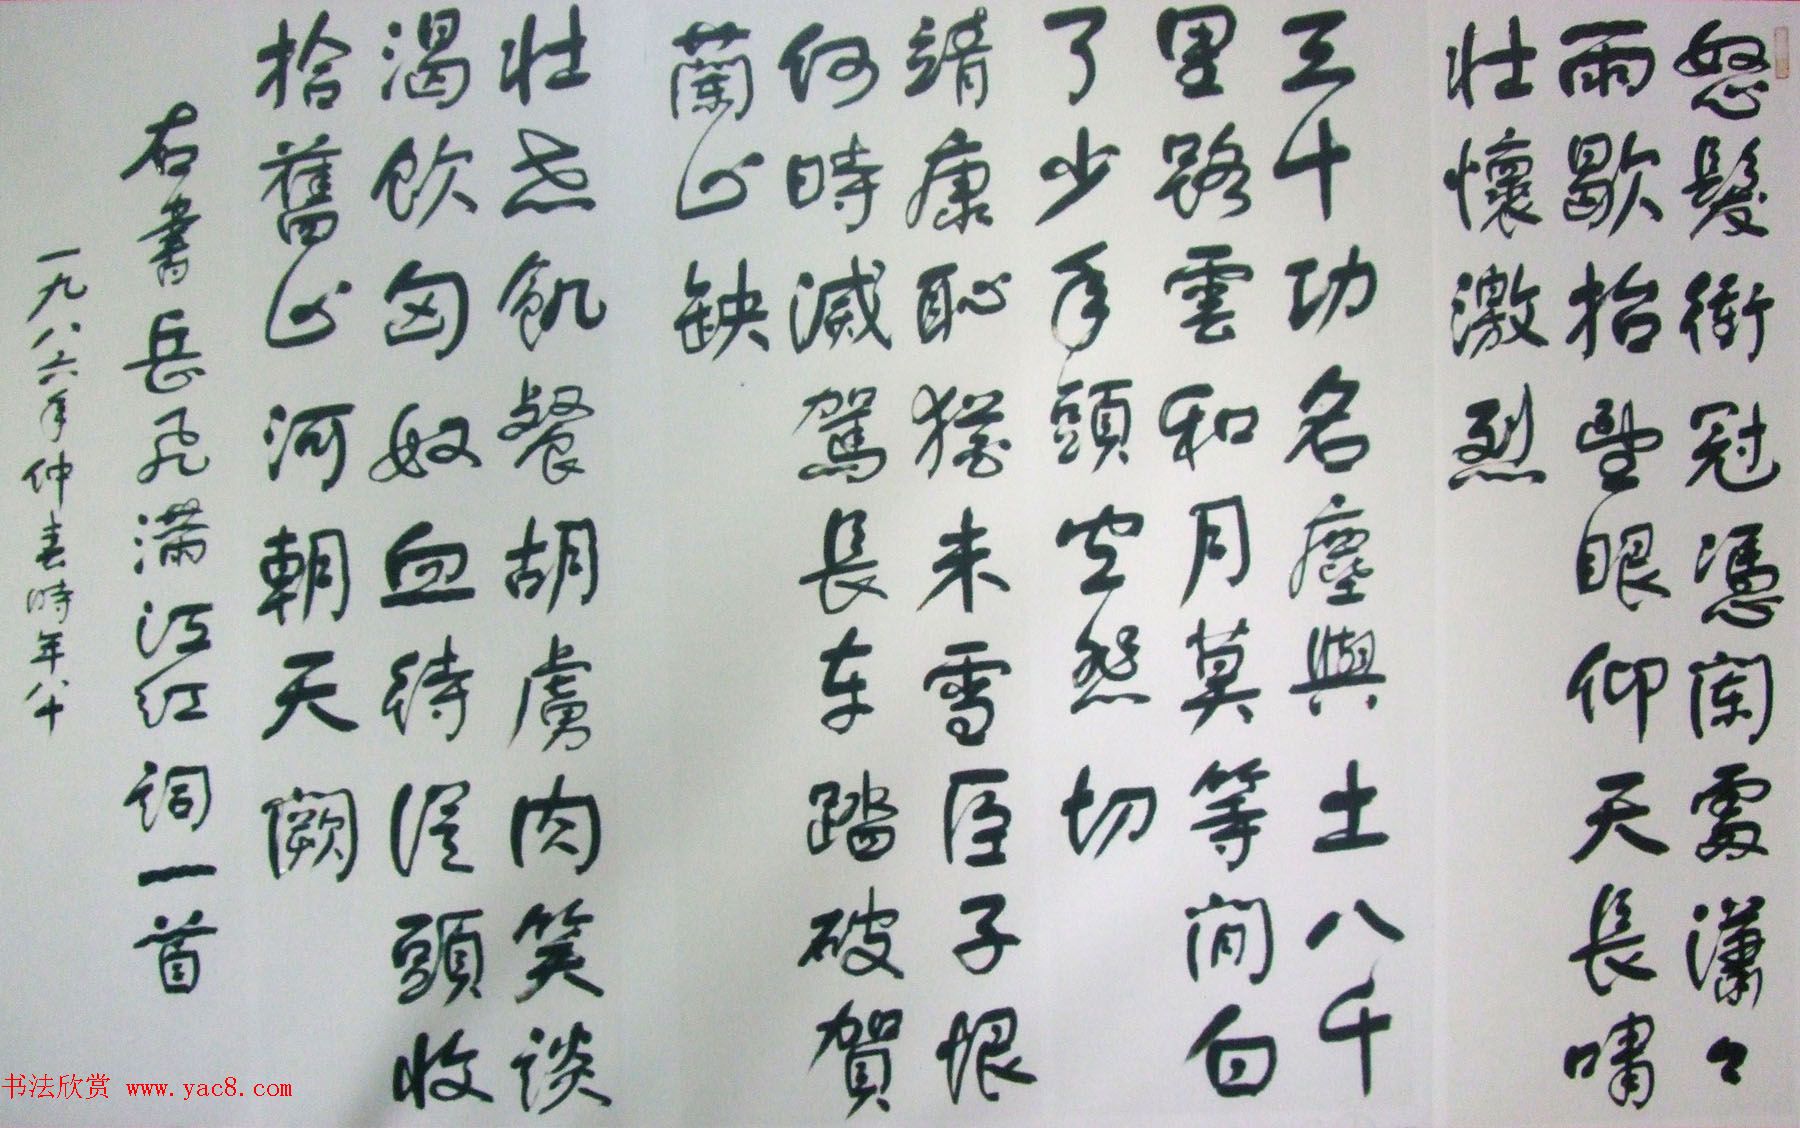 怒髮衝冠憑闌處瀟々
雨歇抬望眼仰天長嘯
壯懷激烈
三十功名塵與土八千
里路雲和月莫等閒白
了少年頭空悲切
靖康恥猶未雪臣子恨
何時滅駕長车踏破賀
蘭山缺
壯志飢餐胡虜肉笑談
渴飲匈奴血待從頭收
拾舊山河朝天闕
右書岳飛滿江紅詞一首
一九八六年仲春時年八十
书法欣赏 www.yac8.com